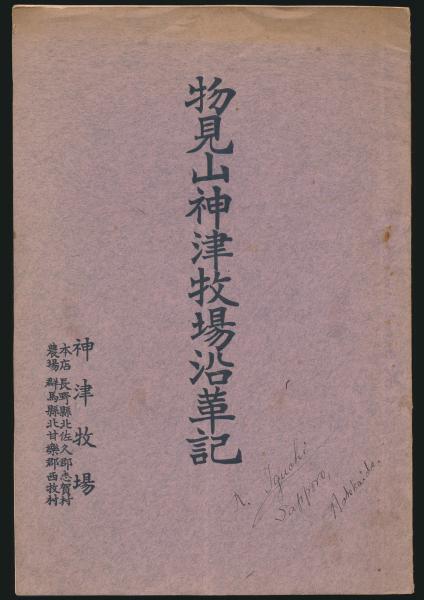 物見山神津牧場沿革記
神津牧場
本店 長野縣北佐久郡志賀村
農場 群馬縣北甘樂郡西牧村
K. Iguchi
Sapporo,
Hokkaido.